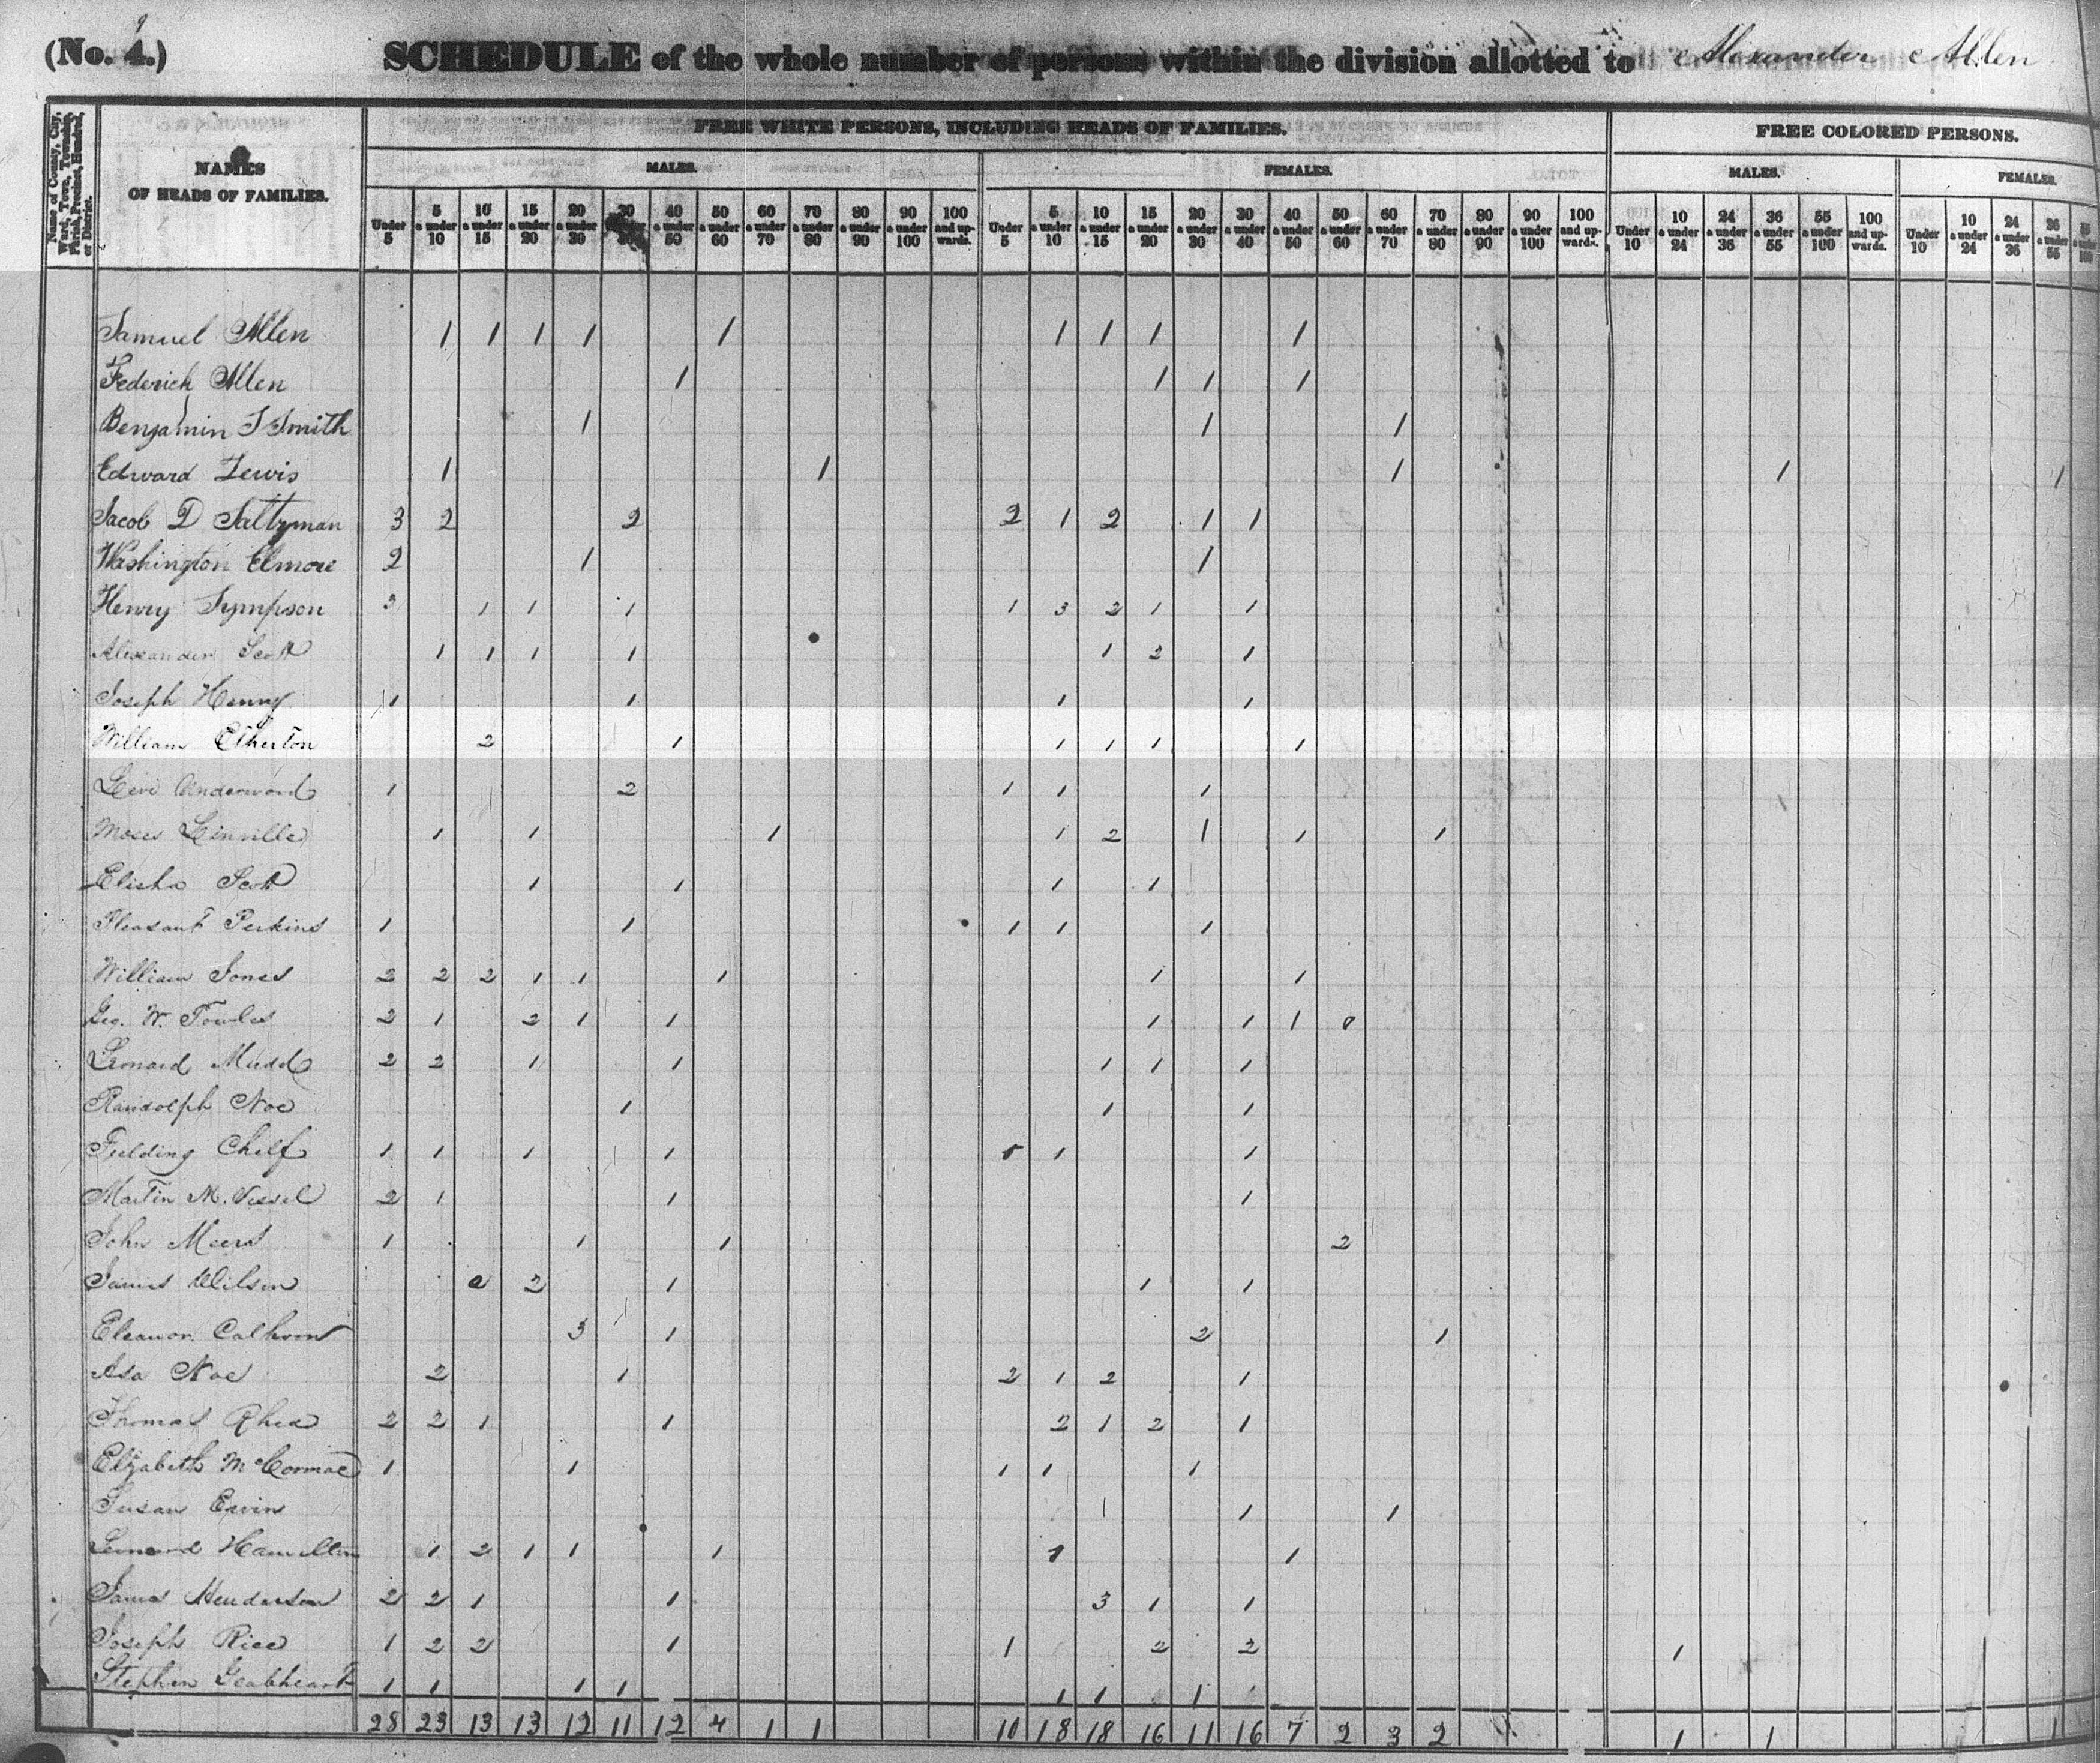 9
(No. 4.) SCHEDULE of the whole number of persons within the division allotted to Alexander Allen
Name of County, City, Ward, Town, Township, Parish, Precinct, Hundred, or District.
NAMES
OF HEADS OF FAMILIES.
FREE WHITE PERSONS, INCLUDING HEADS OF FAMILIES.
FREE COLORED PERSONS.
MALES. FEMALES. MALES. FEMALES.
Under 5 5 & under 10 10 & under 15 15 & under 20 20 & under 30 30 & under 40 40 & under 50 50 & under 60 60 & under 70 70 & under 80 80 & under 90 90 & under 100 100 and upwards. Under 5 5 & under 10 10 & under 15 15 & under 20 20 & under 30 30 & under 40 40 & under 50 50 & under 60 60 & under 70 70 & under 80 80 & under 90 90 & under 100 100 and upwards. Under 10 10 & under 24 24 & under 36 36 & under 55 55 & under 100 100 and upwards. Under 10 10 & under 24 24 & under 36 36 & under 55 55 & under 100
Samuel Allen 1 1 1 1 1 1 1 1 1
Federick Allen 1 1 1 1
Benjamin S Smith 1 1 1
Edward Lewis 1 1 1 1 1
Jacob D Saltzman 3 2 2 2 1 2 1 1
Washington Elmore 2 1 1
Henry Sympson 3 1 1 1 1 3 2 1 1
Alexander Scott 1 1 1 1 1 2 1
Joseph Henry 1 1 1 1
William Etherton 2 1 1 1 1 1
Levi Underwood 1 2 1 1 1
Moses Linville 1 1 1 1 2 1 1 1
Elisha Scott 1 1 1 1
Pleasant Perkins 1 1 1 1 1
William Jones 2 2 2 1 1 1 1 1
Geo. W. Fowles 2 1 2 1 1 1 1 1 0
Leonard Mudd 2 2 1 1 1 1 1
Randolph Noe 1 1 1
Fielding Chelf 1 1 1 1 1 1
Martin M. 2 1 1 1
John Meers 1 1 1 2
James Wilson 2 2 1 1 1
Eleanor Calhoon 3 1 2 1
Asa Noe 2 1 2 1 2 1
Thomas Rhea 2 2 1 1 2 1 2 1
Elizabeth McCormac 1 1 1 1 1
Susan Ervin 1 1 1
Leonard Hamilton 1 2 1 1 1 1 1
James Henderson 2 2 1 1 3 1 1
Joseph Rice 1 2 2 1 1 2 2 1
Stephen Geabheart 1 1 1 1 1 1 1
28 23 13 13 12 11 12 4 1 1 10 18 18 16 11 16 7 2 3 2 1 1 1